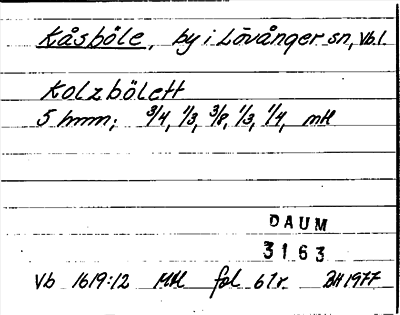 Kåsböle, by i Lövånger sn, Vb.l.
Kolzbölett
5 hmn; 3/4, 1/3, 3/8, 1/3, 1/4, mtl
DAUM
3163
Vb 1619:12 Mtl fol 61r BH 1977